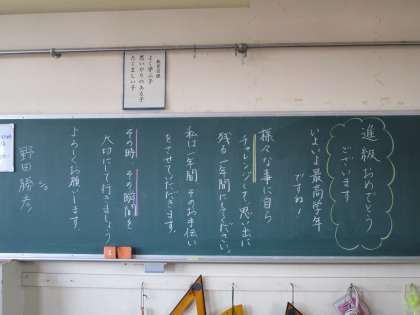 教育目標
よく学ぶ子
思いやりのある子
たくましい子
進級おめでとう
ございます
いよいよ最高学年
ですね!
様々な事に自ら
チャレンジして、思い出に
残る一年間にしてください。
私は一年間、そのお手伝い
をさせていただきます。
その時、その瞬間を
大切にして行きましょう
よろしくお願いします。
野田勝彦